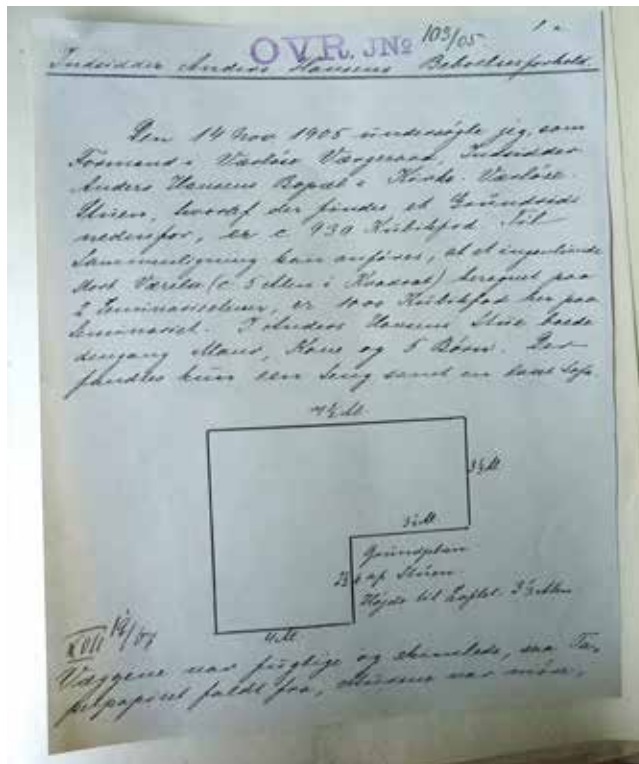 OVR. JNº 103/05
Indsidder Anders Hansens Beboelsesforhold.
Den 14 Nov. 1905 undersøgte jeg, som
Formand i Værløse Værgeraad, Indsidder
Anders Hansens Bopæl i Kirke-Værløse.
Stuen, hvoraf der findes et Grundrids
nedenfor, er c. 939 Kubikfod. Til
Sammenligning kan anføres, at et ingenlunde
stort Værelse (c 5 Alen i Kvadrat) beregnet paa
2 Seminarieelever, er 1000 Kubikfod her paa
Seminariet. I Anders Hansens Stue boede
dengang Mand, Kone og 5 Børn. Der
fandtes kun een Seng samt en
7½ Al.
3½ Al.
3½ Al.
2½
Grundplan
af Stuen.
Højde til Loftet 3½ Alen
4 Al.
XVII
Væggene var fugtige og skimlede, saa Ta-
petpapiret faldt fra,